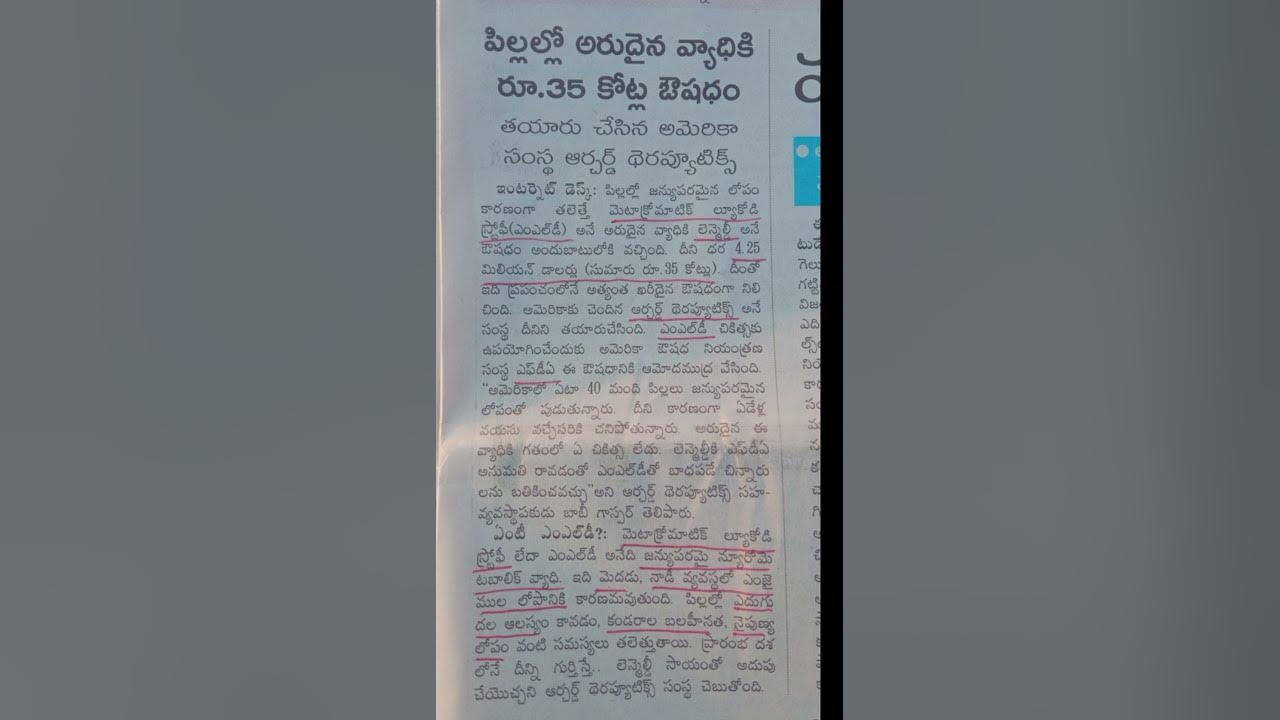 పిల్లల్లో అరుదైన వ్యాధికి
రూ.35 కోట్ల ఔషధం
తయారు చేసిన అమెరికా
సంస్థ ఆర్చర్డ్ థెరప్యూటిక్స్
ఇంటర్నెట్ డెస్క్: పిల్లల్లో జన్యుపరమైన లోపం
కారణంగా తలెత్తే మెటాక్రోమాటిక్ ల్యూకోడి
స్ట్రోఫీ(ఎంఎల్‌డీ) అనే అరుదైన వ్యాధికి లెన్మెల్డీ అనే
ఔషధం అందుబాటులోకి వచ్చింది. దీని ధర 4.25
మిలియన్ డాలర్లు (సుమారు రూ.35 కోట్లు). దీంతో
ఇది ప్రపంచంలోనే అత్యంత ఖరీదైన ఔషధంగా నిలి
చింది. అమెరికాకు చెందిన ఆర్చర్డ్ థెరప్యూటిక్స్ అనే
సంస్థ దీనిని తయారుచేసింది. ఎంఎల్‌డీ చికిత్సకు
ఉపయోగించేందుకు అమెరికా ఔషధ నియంత్రణ
సంస్థ ఎఫ్‌డీఏ ఈ ఔషధానికి ఆమోదముద్ర వేసింది.
“అమెరికాలో ఏటా 40 మంది పిల్లలు జన్యుపరమైన
లోపంతో పుడుతున్నారు. దీని కారణంగా ఏడేళ్ల
వయసు వచ్చేసరికి చనిపోతున్నారు. అరుదైన ఈ
వ్యాధికి గతంలో ఏ చికిత్స లేదు. లెన్మెల్డీకి ఎఫ్‌డీఏ
అనుమతి రావడంతో ఎంఎల్‌డీతో బాధపడే చిన్నారు
లను బతికించవచ్చు”అని ఆర్చర్డ్ థెరప్యూటిక్స్ సహ-
వ్యవస్థాపకుడు బాబీ గాస్పర్ తెలిపారు.
ఏంటీ ఎంఎల్‌డీ?: మెటాక్రోమాటిక్ ల్యూకోడి
స్ట్రోఫీ లేదా ఎంఎల్‌డీ అనేది జన్యుపరమై న్యూరోమె
టబాలిక్ వ్యాధి. ఇది మెదడు, నాడీ వ్యవస్థలో ఎంజై
ముల లోపానికి కారణమవుతుంది. పిల్లల్లో ఎదుగు
దల ఆలస్యం కావడం, కండరాల బలహీనత, నైపుణ్య
లోపం వంటి సమస్యలు తలెత్తుతాయి. ప్రారంభ దశ
లోనే దీన్ని గుర్తిస్తే.. లెన్మెల్డీ సాయంతో అదుపు
చేయొచ్చని ఆర్చర్డ్ థెరప్యూటిక్స్ సంస్థ చెబుతోంది.